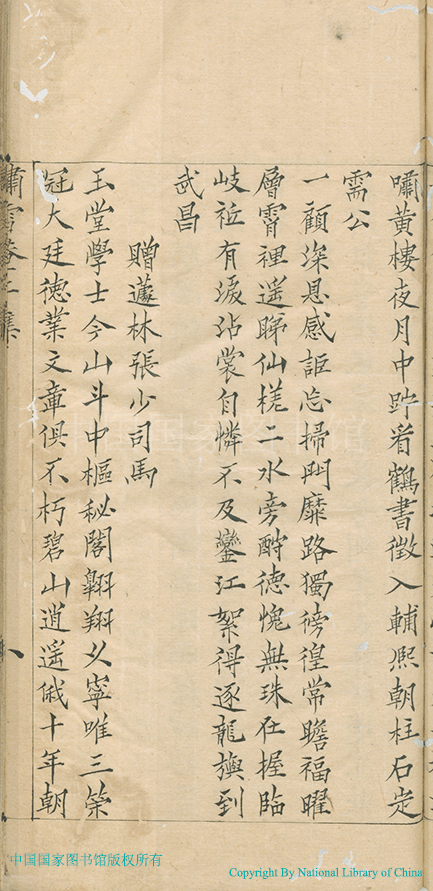 嘯黃樓夜月中跂看鶴書徵入輔熙朝柱石定
需公
一顧深恩感詎忘掃門靡路獨徬徨常瞻福曜
層霄裡遥睇仙槎二水旁酧德愧無珠在握臨
岐衹有淚沾裳自憐不及鑾江絮得逐龍旟到
武昌
贈蘧林張少司馬
玉堂學士今山斗中樞秘閣翱翔久寧唯三策
冠大廷徳業文章俱不朽碧山逍遥俄十年朝
嘯雪 二集
八
中国国家图书馆版权所有
Copyright By National Library of China